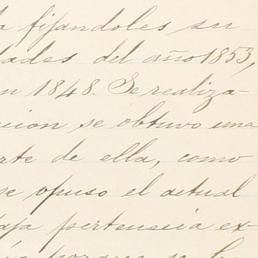 a fijandoles su
dades del año 1853,
n 1848. Se realiza-
cion se obtuvo una
rte de ella, como
se opuso el actual
aja pertenecia ex-